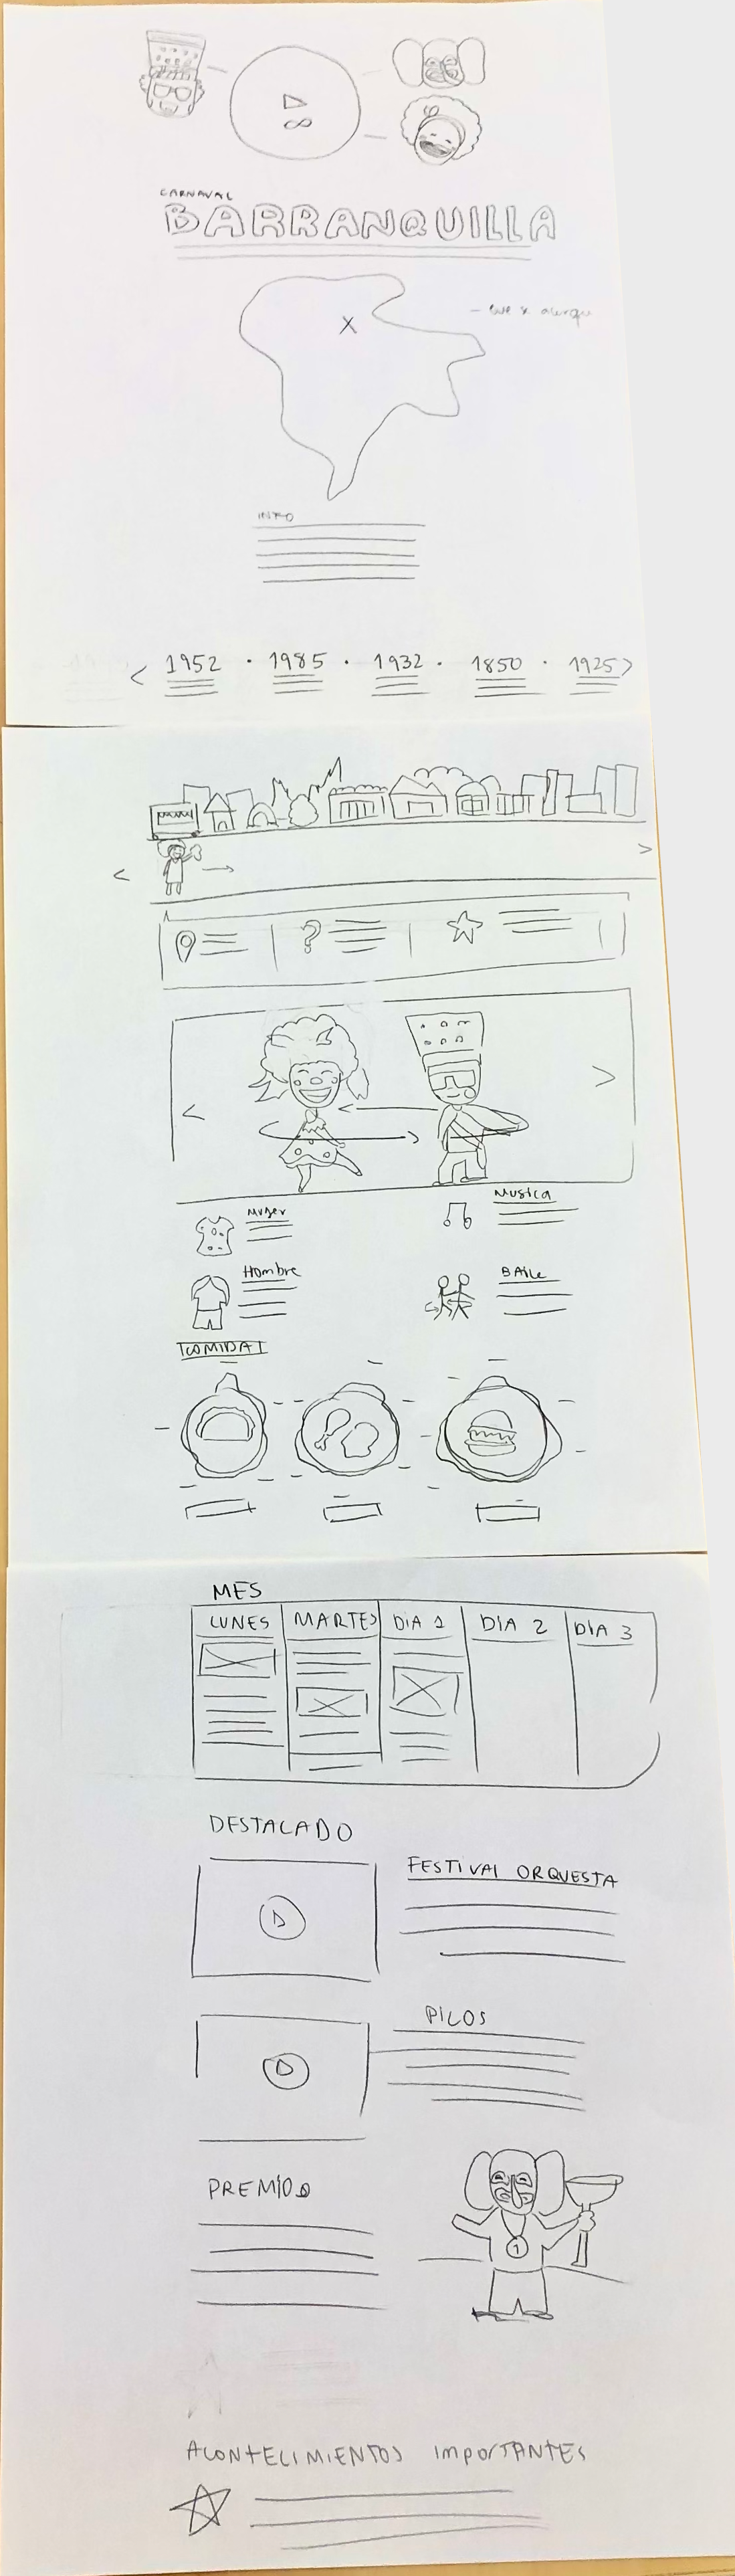 CARNAVAL
BARRANQUILLA
INFO
1952 · 1985 · 1932 · 1850 · 1925
Mujer
Musica
Hombre
BAile
COMIDA
MES
LUNES MARTES DIA 1 DIA 2 DIA 3
DESTACADO
FESTIVAl ORQUESTA
PILOS
PREMIOS
1
ACONTECIMIENTOS ImporTANTES